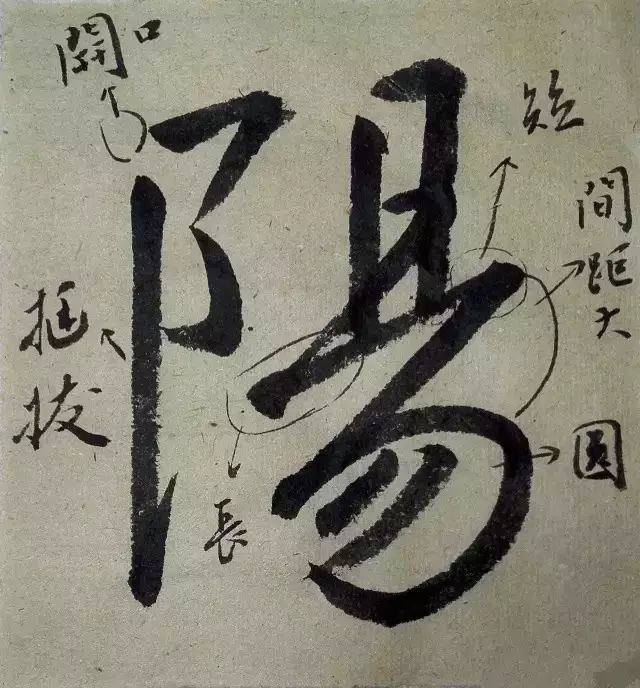 開口
陽
短
間距大
挺拔
圓
長